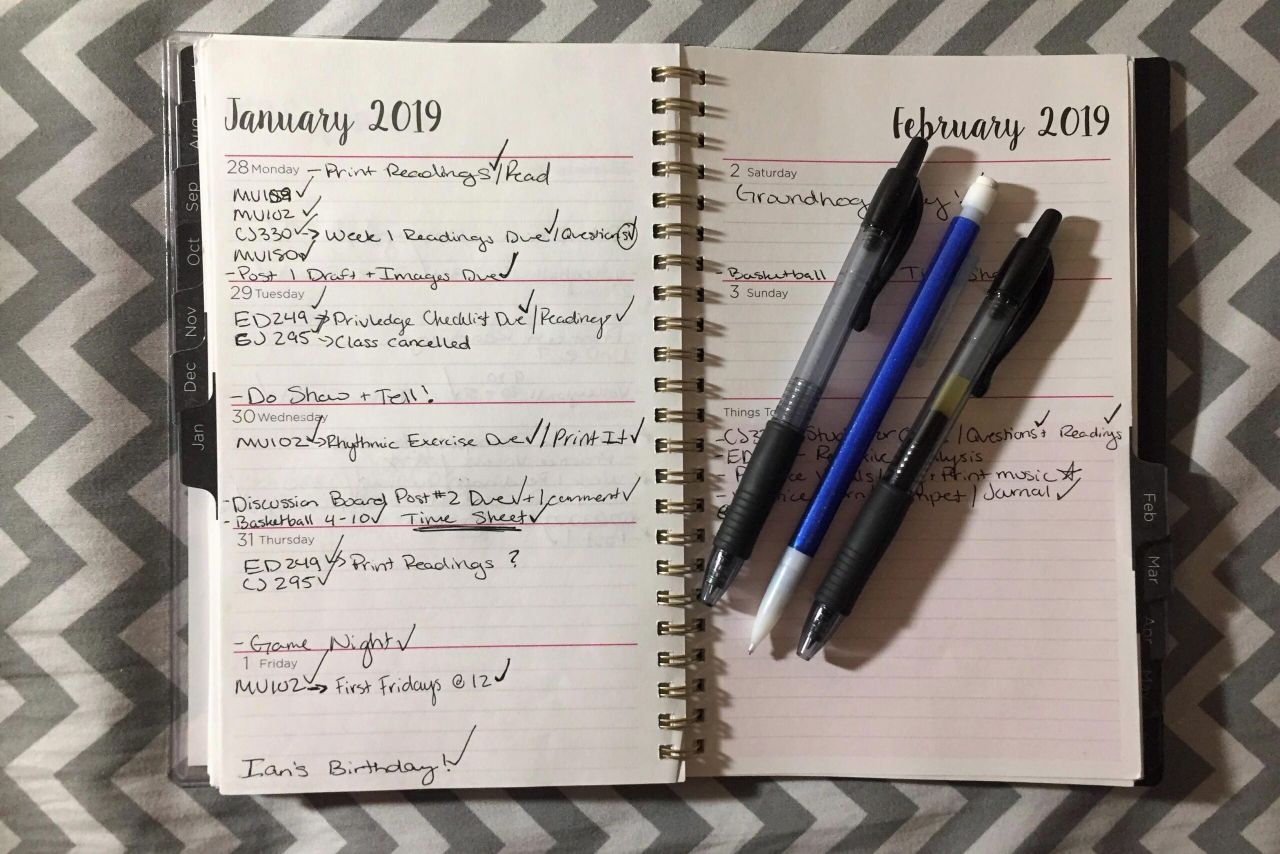 January 2019
28 Monday - Print Readings ✓/Read
MU159 ✓
MU102 ✓
CJ330 ✓→ Week 1 Readings Due ✓/Questions
MU150 ✓
- Post 1 Draft + Images Due ✓
29 Tuesday ✓
ED249 → Privledge Checklist Due ✓/Readings ✓
EJ 295 → Class cancelled
- Do Show + Tell!
30 Wednesday
MU102 ✓→ Rhythmic Exercise Due ✓/Print It ✓
- Discussion Board Post #2 Due ✓ + 1 comment ✓
- Basketball 4-10 ✓ Time Sheet ✓
31 Thursday
ED249 ✓→ Print Readings ?
CJ 295 ✓
- Game Night ✓
1 Friday
MU102 ✓→ First Fridays @ 12 ✓
Ian's Birthday! ✓
Aug
Sep
Oct
Nov
Dec
Jan
February 2019
2 Saturday
Groundhog
- Basketball
3 Sunday
Things
/Questions ✓ + Readings ✓
Print music ☆
/Journal ✓
Feb
Mar
Apr